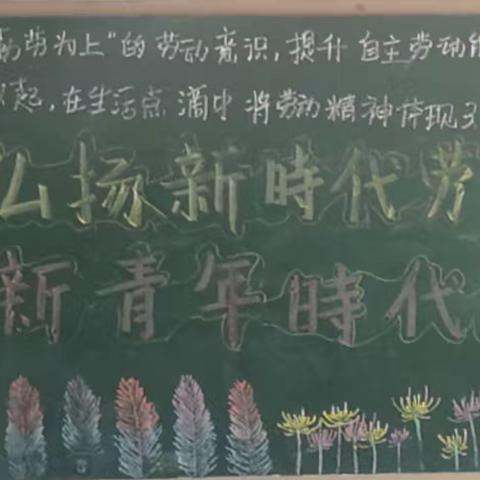 劳为上"的劳动意识，提升自主劳动能
起，在生活点滴中将劳动精神体现
弘扬新時代劳
新青年時代